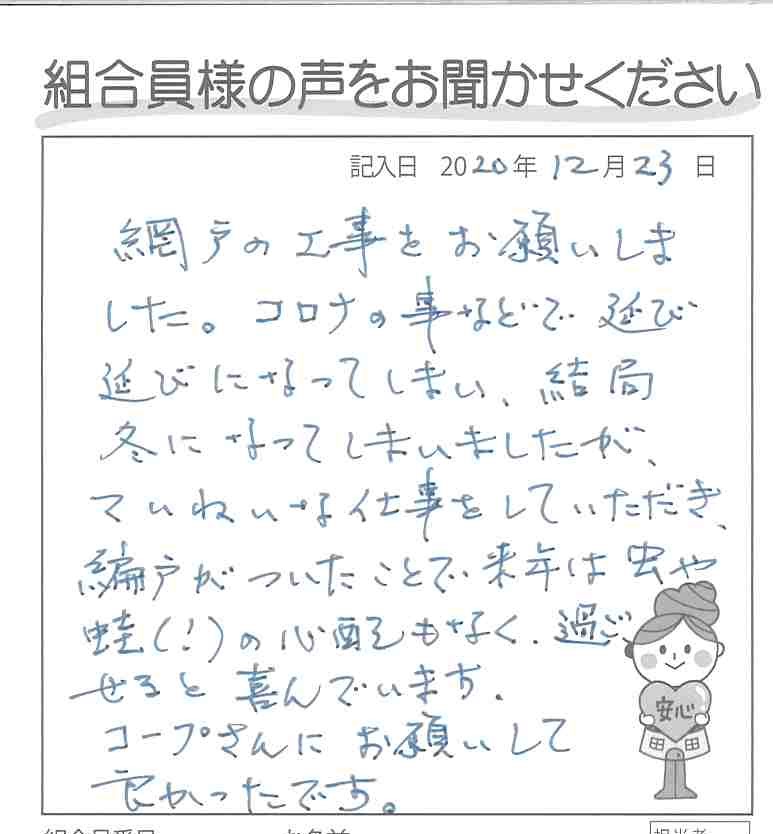 組合員様の声をお聞かせください
記入日 2020年 12月23日
網戸の工事をお願いしま
した。コロナの事などで延び
延びになってしまい、結局
冬になってしまいましたが、
ていねいな仕事をしていただき、
編戸がついたことで来年は虫や
蛙(!)の心配もなく、過ご
せると喜んでいます。
安心
コープさんにお願いして
良かったです。